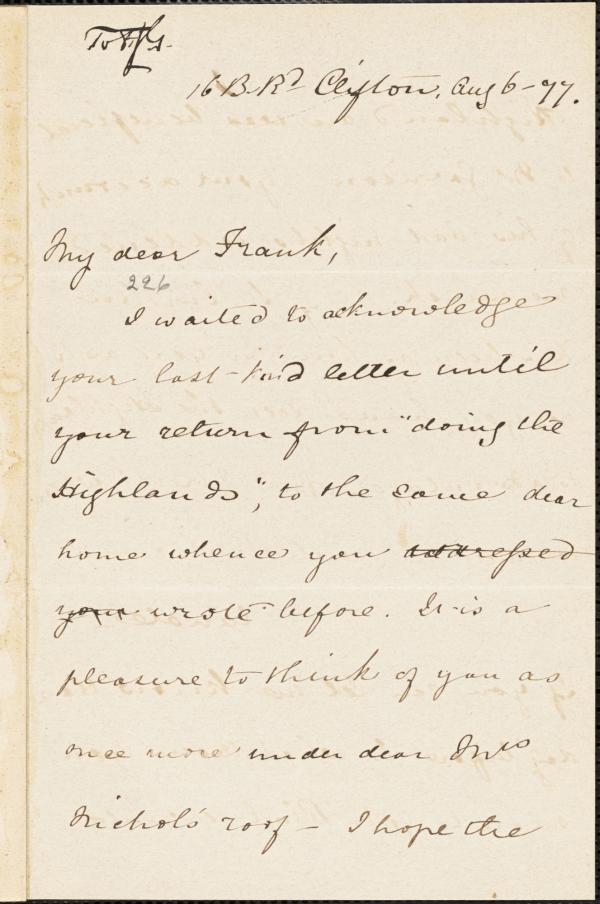 To F.J.G.
16 B. Rd Clifton, Aug 6 - 77.
My dear Frank,
226
I waited to acknowledge
your last kind letter until
your return from "doing the
Highlands", to the same dear
home whence you addressed
your wrote before. It is a
pleasure to think of you as
once more under dear Mrs
Nichol's roof - I hope the